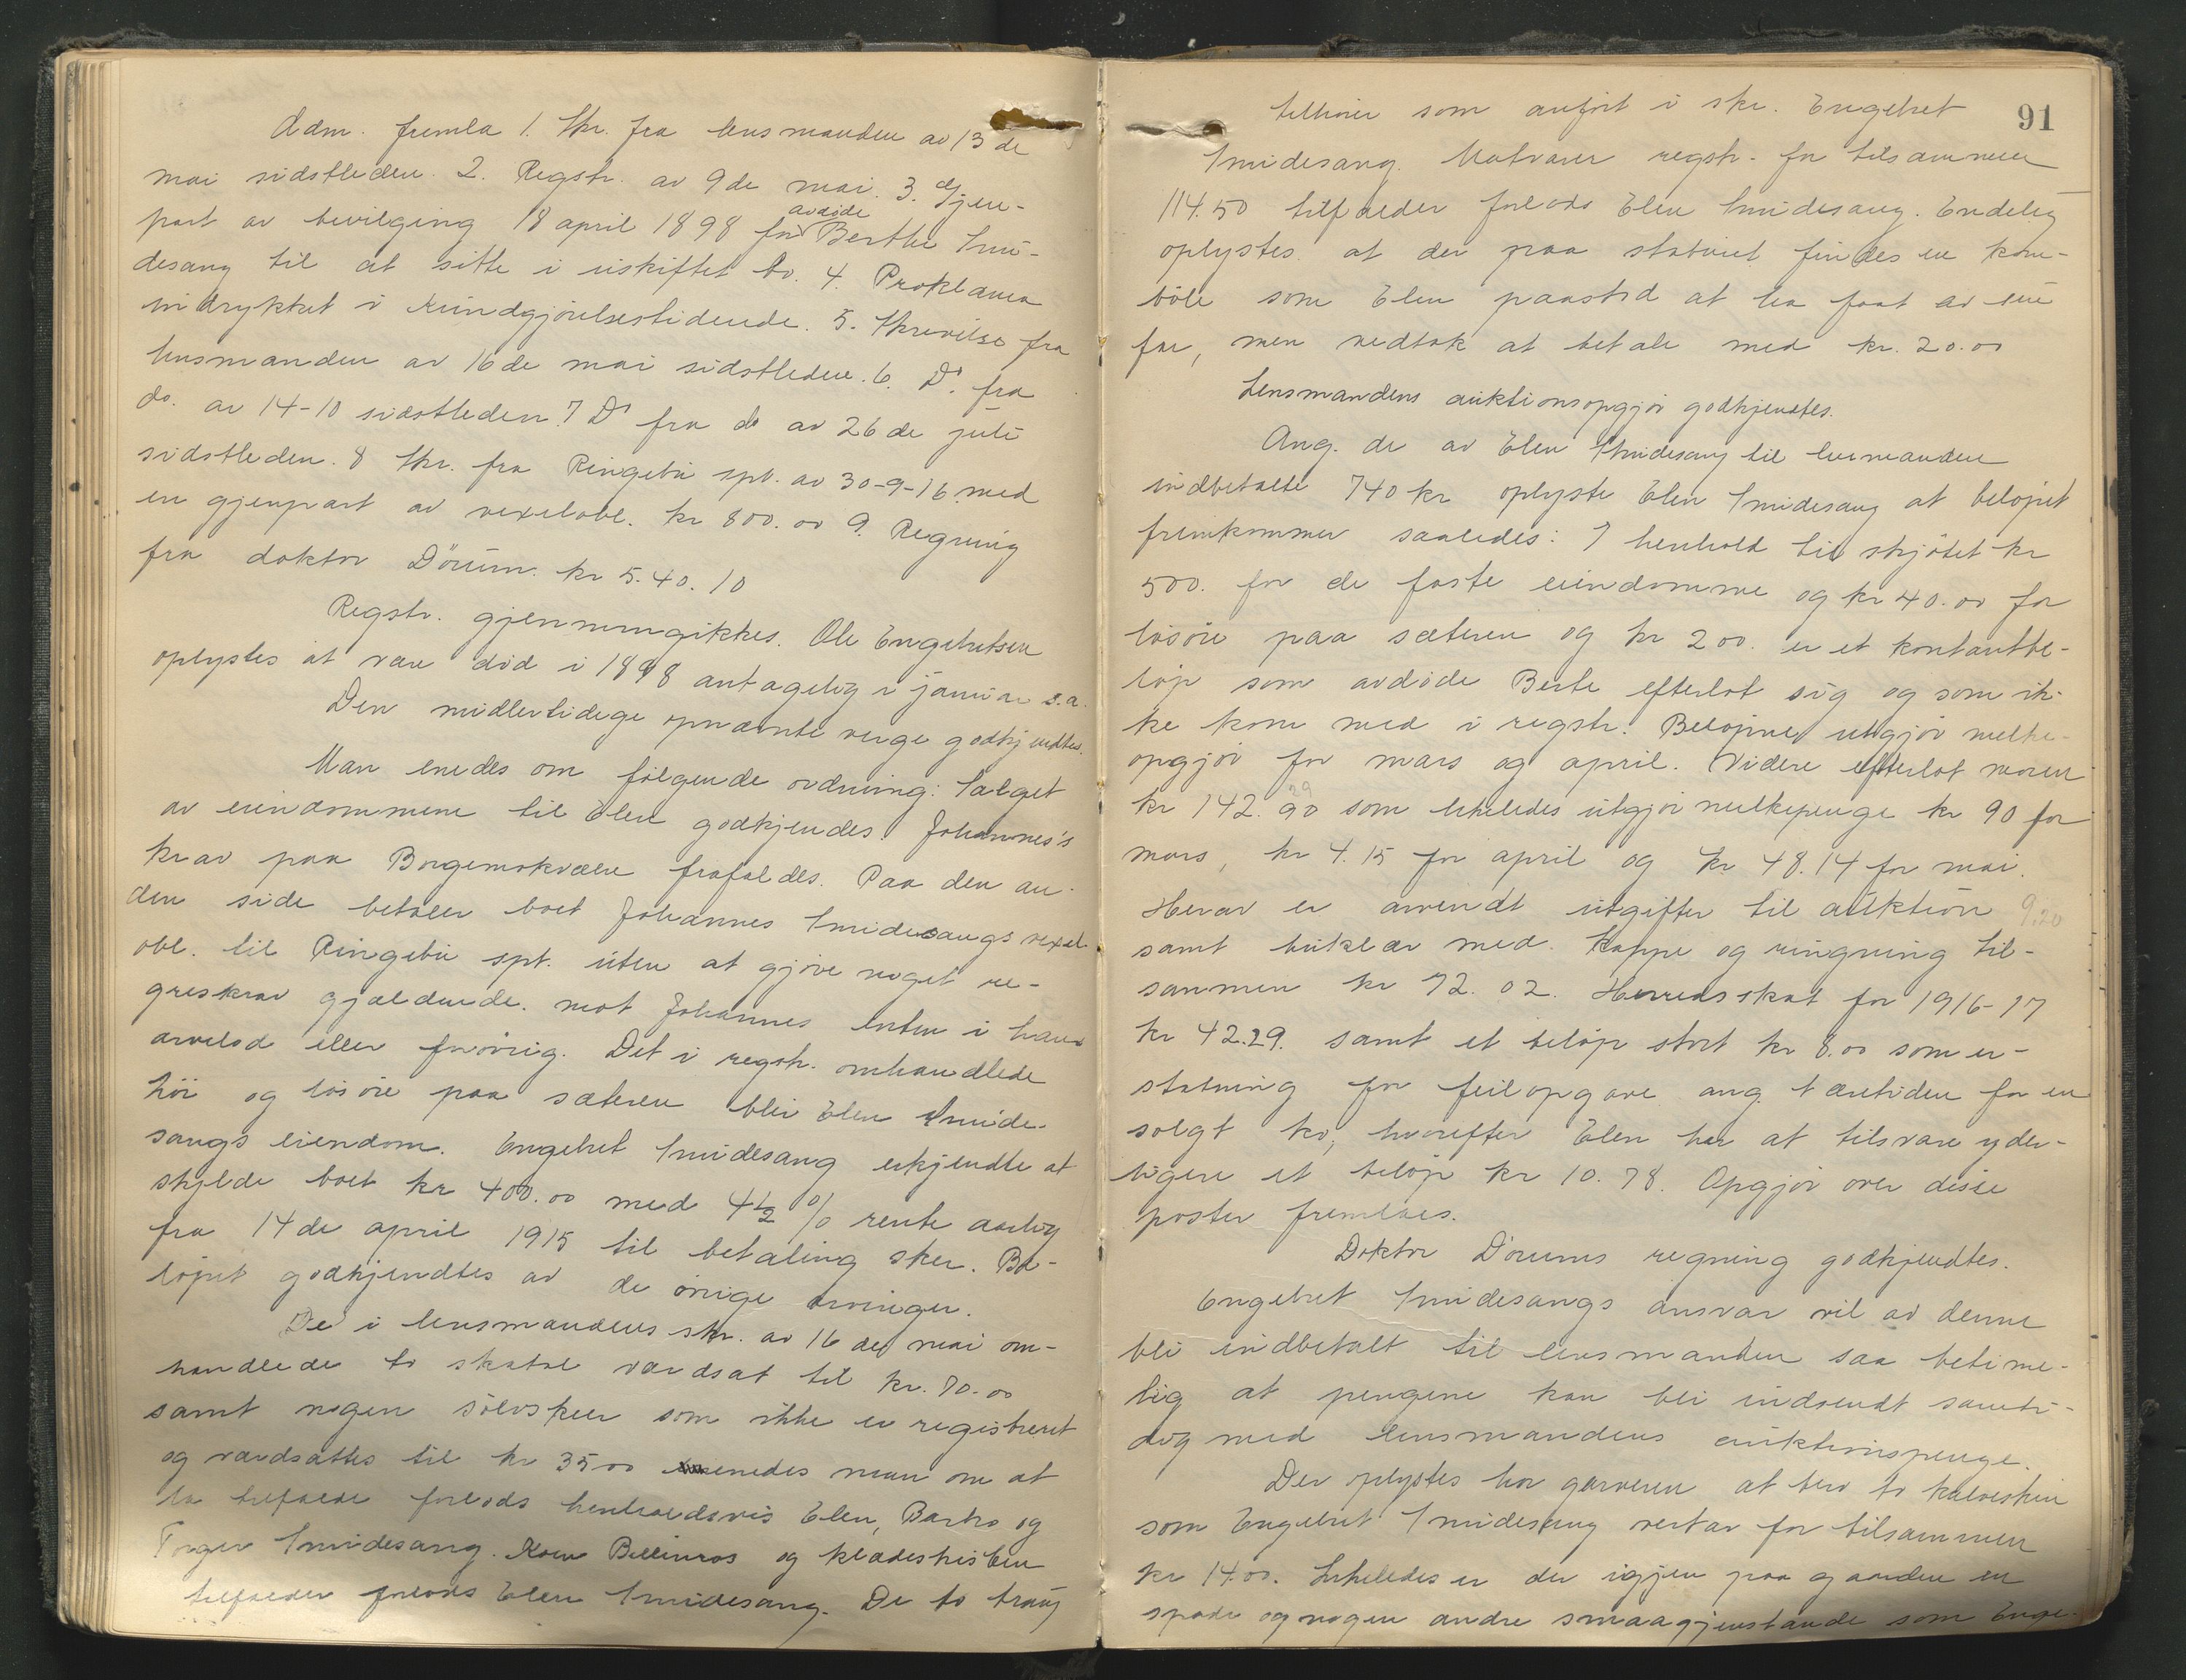 Adm. fremla 1. Skr. fra lensmanden av 13 de
mai sidstleden. 2. Regstr. av 9 de mai. 3. Gjen-
part av bevilging 18 april 1898 for avdøde Berthe Smi-
desang til at sitte i uskiftet bo. 4. Proklama
indrykket i Kundgjørelsestidende. 5. Skrivelse fra
lensmanden av 16 de mai sidstleden. 6. Do. fra
do. av 14-10 sidstleden. 7 Do fra do av 26 de juli
sidstleden. 8 Skr. fra Ringebu spb. av 30-9-16 med
en gjenpart av vexelobl. kr 800.00 9. Regning
fra doktor Dörum. kr 5.40. 10
Regstr. gjennemgikkes. Ole Engebretsen
oplystes at være död i 1898 antagelig i januar s.a.
Den midlertidige opnævnte verge godkjendtes.
Man enedes om følgende ordning: Salget
av eiendommene til Elen godkjendes. Johannes's
krav paa Borgemokvælve frafaldes. Paa den an-
den side betaler boet Johannes Smidesangs vexel-
obl. til Ringebu spb. uten at gjøre noget re-
greskrav gjældende. mot Johannes enten i hans
arvelod eller forøvrig. Det i regstr. omhandlede
höi og lösöre paa sæteren blir Elen Smide-
sangs eiendom. Engebret Smidesang erkjendte at
skylde boet kr 400.00 med 4½ % rente aarlig
fra 14 de april 1915 til betaling sker. Be-
löpet godkjendtes av de övrige arvinger.
De i lensmandens skr. av 16 de mai om-
handlede to skatol værdsat til kr. 70.00
samt nogen sölvskeer som ikke er registreret
og værdsattes til kr 35 00 enedes man om at
la tilfalde forlods henholdsvis Elen, Barbo og
Torger Smidesang. Koen Bellinros og klædeskisten
tilfalder forlods Elen Smidesang. De to traug
tilhører som anført i skr. Engebret 91
Smidesang. Matvarer regstr. for tilsammen
114.50 tilfalder forlods Elen Smidesang. Endelig
oplystes at der paa stabburet findes en korn-
böle som Elen paastod at ha faat av sin
far, men vedtok at betale med kr. 20.00
Lensmandens auktionsopgjör godkjendtes.
Ang. de av Elen Smidesang til lensmanden
indbetalte 740 kr oplyste Elen Smidesang at belöpet
fremkommer saaledes: I henhold til skjötet kr
500. for de faste eiendomme og kr 40.00 for
lösöre paa sæteren og kr 200. er et kontantbe-
löp som avdöde Berte efterlot sig og som ik-
ke kom med i regstr. Belöpene utgjör melke-
opgjör for mars og april. Videre efterlot moren
kr 142.29 som likeledes utgjör melkepenge kr 90 for
mars, kr 4.15 for april og kr 48.14 for mai.
Herav er anvendt utgifter til auktion 9.20
samt liklær med. kappe og ringning til-
sammen kr 72.02. Herredsskat for 1916-17
kr 42.29. samt et belöp stort kr 8.00 som er-
statning for feilopgave ang. bæretiden for en
solgt ko, hvorefter Elen har at tilsvare yder-
ligere et belöp kr 10.78. Opgjör over disse
poster fremlaes.
Doktor Dörums regning godkjendtes.
Engebret Smidesangs ansvar vil av denne
bli indbetalt til lensmanden saa betime-
lig at pengene kan bli indsendt samti-
dig med lensmandens auktionspenge.
Der oplystes hos garveren at bero to kalveskin
som Engebret Smidesang overtar for tilsammen
kr 14.00. Likeledes er der igjen paa gaarden en
spade og nogen andre smaagjenstande som Enge-